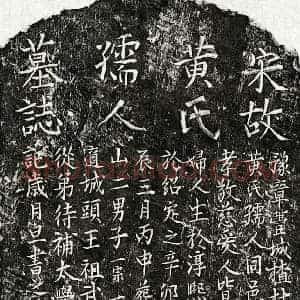 宋故
黄氏
孺人
墓誌
豫章豊城擢桂
黄氏孺人同邑
孝敬慈爱人皆
婦人生於淳熈
於紹定之辛卯
辰三月丙申葬
山一男子一宗
城頭王祖武
從弟待補太學
記歲月且書之